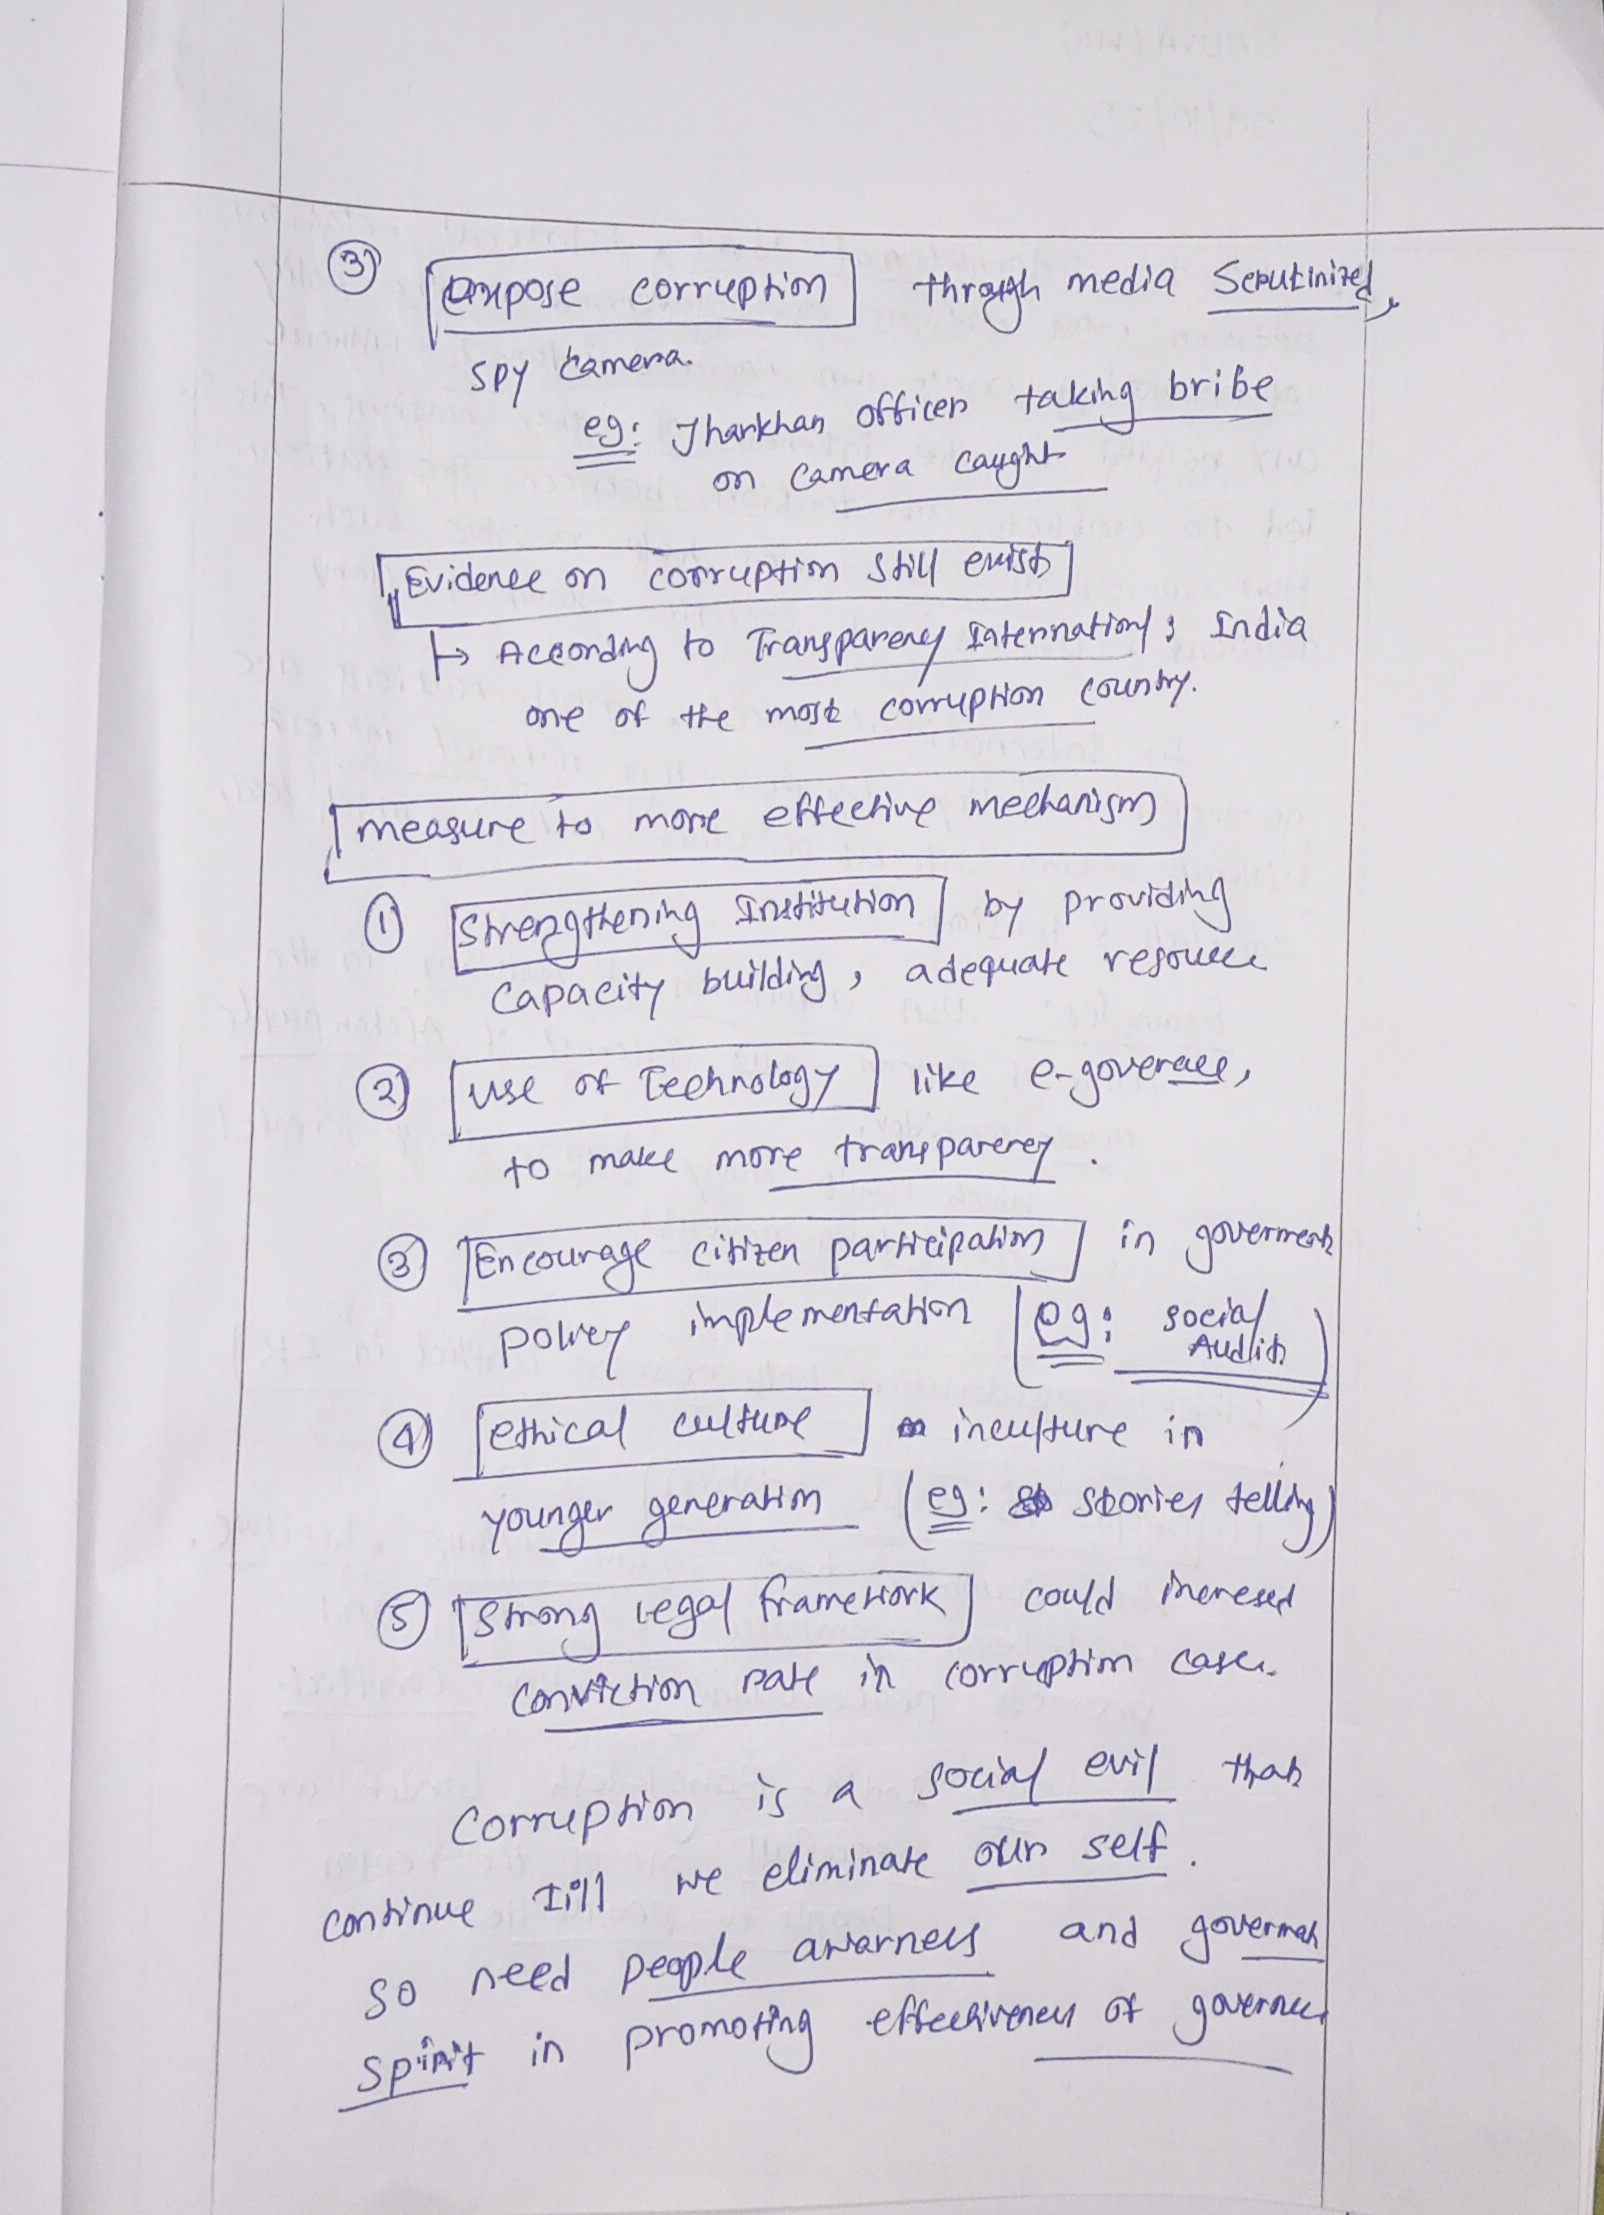 ③ expose corruption through media Scrutinized,
spy camera.
eg: Jharkhan officer taking bribe
on camera caught
Evidence on corruption still exists
↳ According to Transparency International; India
one of the most corruption country.
measure to more effective mechanism
① Strengthening Institution by providing
capacity building, adequate resource
② use of Technology like e-goverace,
to make more transparency.
③ Encourage citizen participation in goverment
policy implementation (eg: social
Audits)
④ ethical culture inculture in
younger generation (eg: stories telling)
⑤ Strong Legal framework could incresed
conviction rate in corruption cases.
Corruption is a social evil that
continue till we eliminate our self.
so need people awarness and goverment
spirit in promoting effectiveness of governce